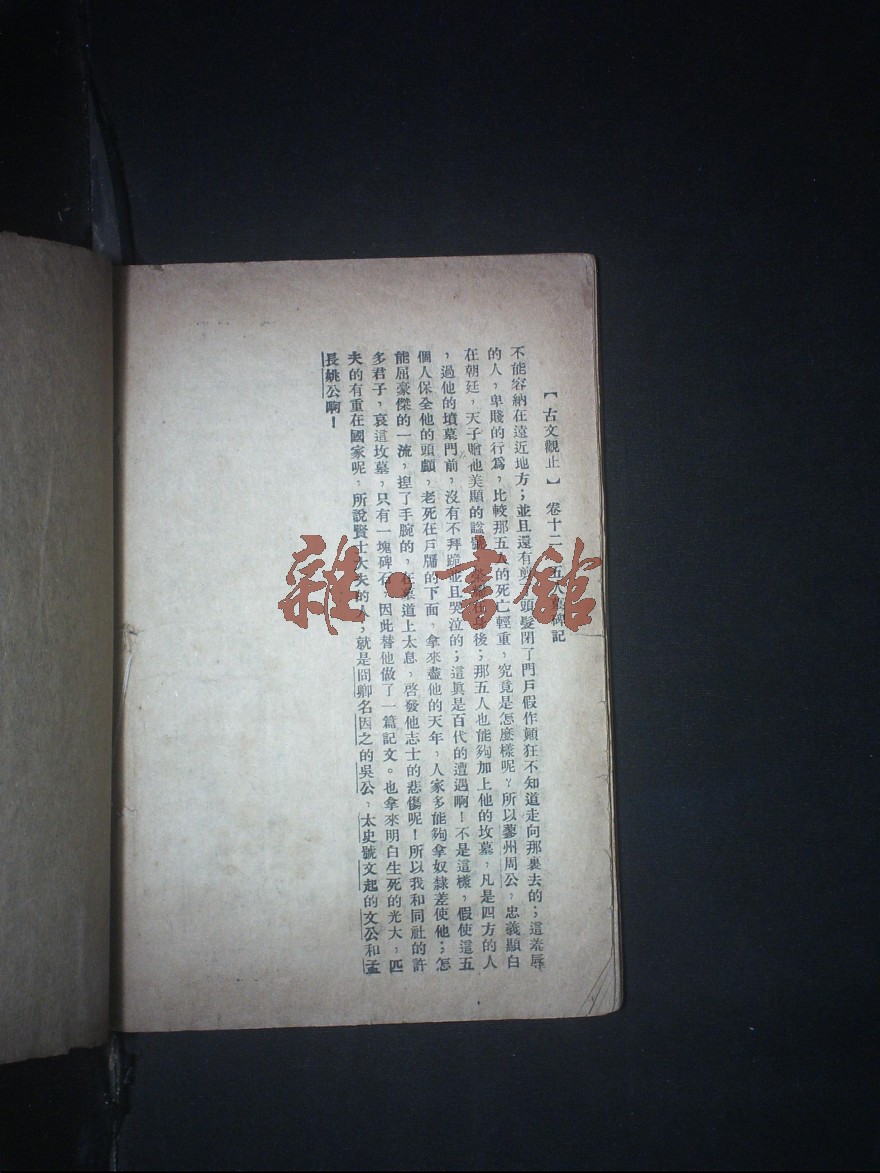 【古文觀止】 卷十二 五人墓碑記
不能容納在遠近地方；並且還有剪了頭髮閉了門戶假作顚狂不知道走向那裏去的；這羞辱
的人，卑賤的行爲，比較那五人的死亡輕重，究竟是怎麼樣呢？所以蓼州周公，忠義顯白
在朝廷，天子贈他美顯的諡號，榮耀在身後；那五人也能夠加上他的坟墓，凡是四方的人
，過他的墳墓門前，沒有不拜跪並且哭泣的；這眞是百代的遭遇啊！不是這樣，假使這五
個人保全他的頭顱，老死在戶牖的下面，拿來盡他的天年，人家多能夠拿奴隸差使他；怎
能屈豪傑的一流，捏了手腕的，在墓道上太息，啓發他志士的悲傷呢！所以我和同社的許
多君子，哀這坟墓，只有一塊碑石，因此替他做了一篇記文。也拿來明白生死的光大，匹
夫的有重在國家呢，所說賢士大夫的人；就是冏卿名因之的吳公，太史號文起的文公和孟
長姚公啊！
雜·書館